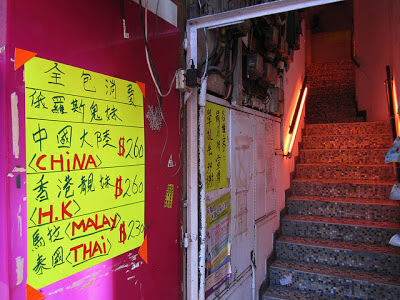 全包消費
俄羅斯鬼妹
中國大陸 $260
<CHINA>
香港靚妹 $260
<H.K>
馬拉<MALAY> $230
泰國<THAI>